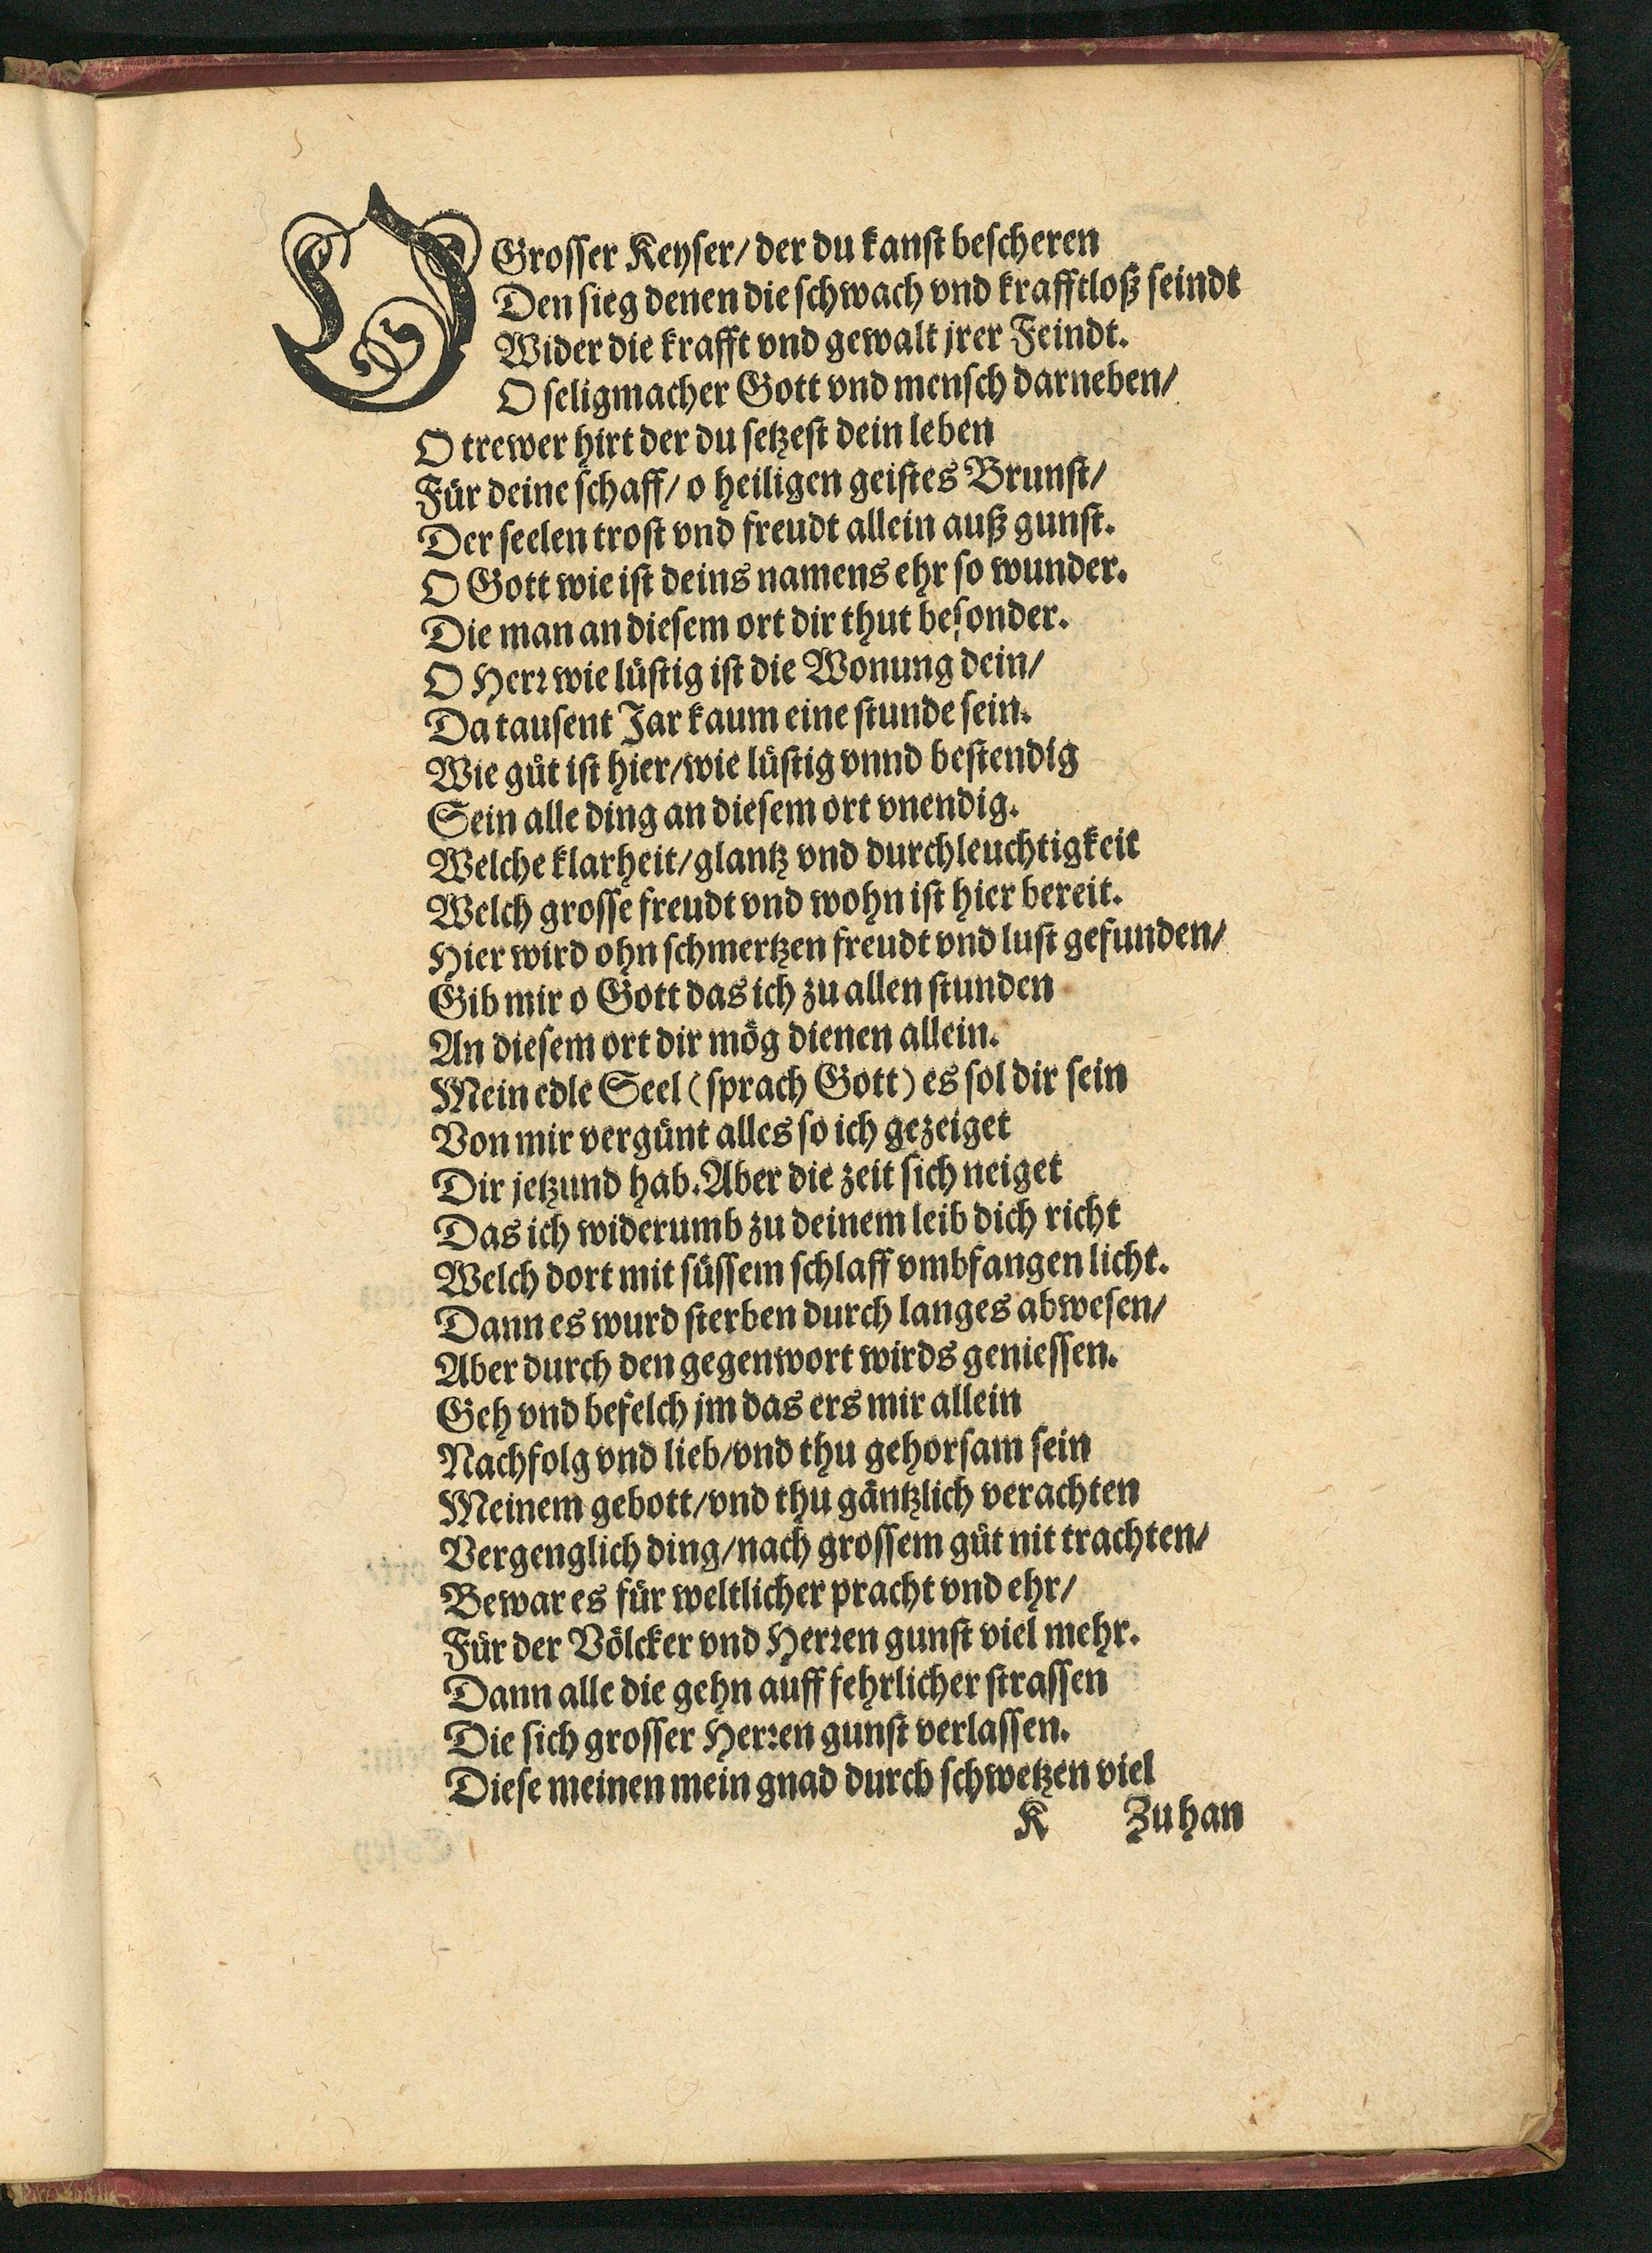 O Grosser Keyser/ der du kanst bescheren
Den sieg denen die schwach vnd krafftloß seindt
Wider die krafft vnd gewalt jrer Feindt.
O seligmacher Gott vnd mensch darneben/
O trewer hirt der du setzest dein leben
Für deine schaff/ o heiligen geistes Brunst/
Der seelen trost vnd freudt allein auß gunst.
O Gott wie ist deins namens ehr so wunder.
Die man an diesem ort dir thut besonder.
O Herr wie lüstig ist die Wonung dein/
Da tausent Jar kaum eine stunde sein.
Wie güt ist hier/wie lüstig vnnd bestendig
Sein alle ding an diesem ort vnendig.
Welche klarheit/glantz vnd durchleuchtigkeit
Welch grosse freudt vnd wohn ist hier bereit.
Hier wird ohn schmertzen freudt vnd lust gefunden/
Gib mir o Gott das ich zu allen stunden
An diesem ort dir mög dienen allein.
Mein edle Seel (sprach Gott) es sol dir sein
Von mir vergünt alles so ich gezeiget
Dir jetzund hab. Aber die zeit sich neiget
Das ich widerumb zu deinem leib dich richt
Welch dort mit süssem schlaff vmbfangen licht.
Dann es wurd sterben durch langes abwesen/
Aber durch den gegenwort wirds geniessen.
Geh vnd befelch jm das ers mir allein
Nachfolg vnd lieb/vnd thu gehorsam sein
Meinem gebott/vnd thu gäntzlich verachten
Vergenglich ding/nach grossem güt nit trachten/
Bewar es für weltlicher pracht vnd ehr/
Für der Völcker vnd Herren gunst viel mehr.
Dann alle die gehn auff fehrlicher strassen
Die sich grosser Herren gunst verlassen.
Diese meinen mein gnad durch schwetzen viel
K Zu han